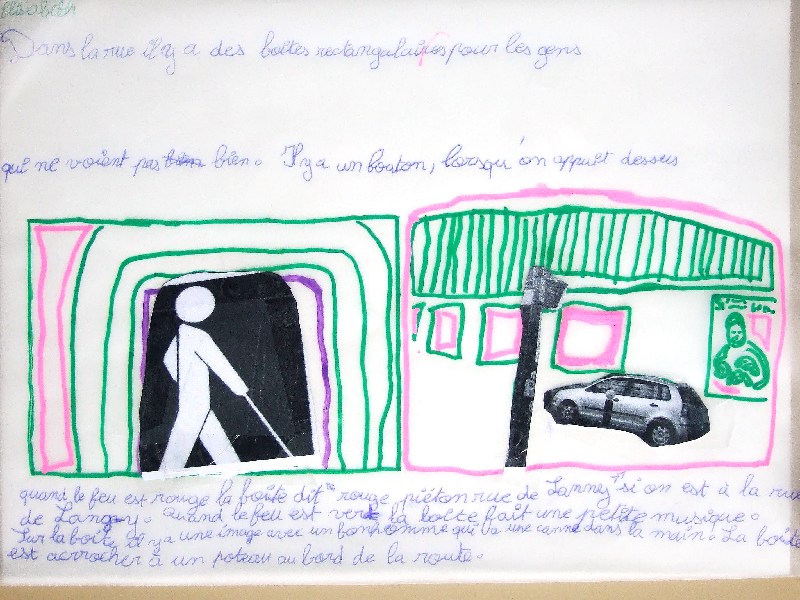 Elisabeth
Dans la rue il y a des boîtes rectangulaires pour les gens
qui ne voient pas bien. Il y a un bouton, lorsqu'on appuit dessus
quand le feu est rouge la boîte dit " rouge piéton rue de Lannez " si on est à la rue
de Langey. Quand le feu est vert la boîte fait une petite musique.
Sur la boîte il y a une image avec un bonhomme qui a une canne dans la main. La boîte
est accrocher à un poteau au bord de la route.